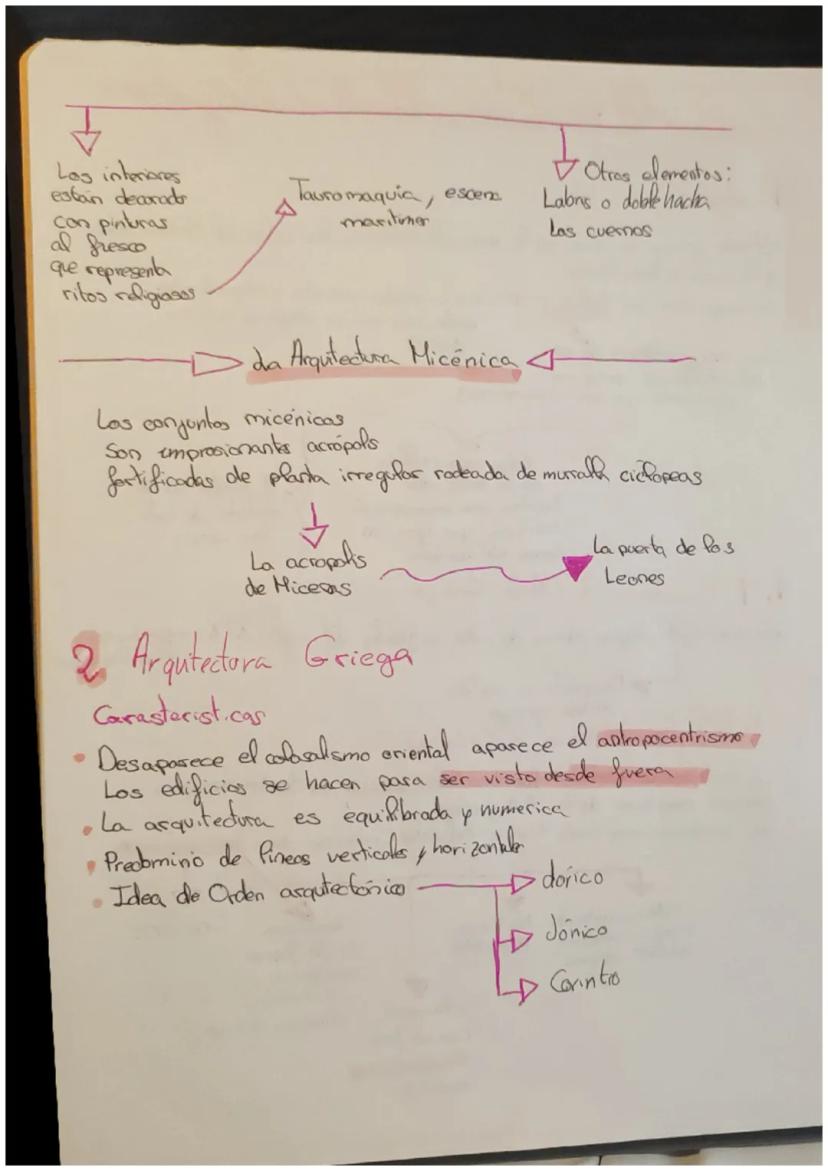 Los interiores
están decorado
con pinturas
al fresco
que representa
ritos religiosos
Tauromaquia, escena
maritimer
Otros elementos:
Labris o doble hacha
Los cuernos
La Arquitectura Micénica
Los conjuntos micénicos
son impresionants acrópolis
fortificadas de planta irregular rodeada de muralla ciclopeas
La acropolis
de Micenas
La puerta de los
Leones
2 Arquitectura Griega
Caracterist.cas
Desaparece el colosalismo oriental aparece el antropocentrismo
Los edificios se hacen para ser visto desde fuera
La arquitectura es equilibrada y numerica
Predominio de lineas verticales y horizontales
Idea de Orden arquitectónico
dorico
Jónico
Corintio